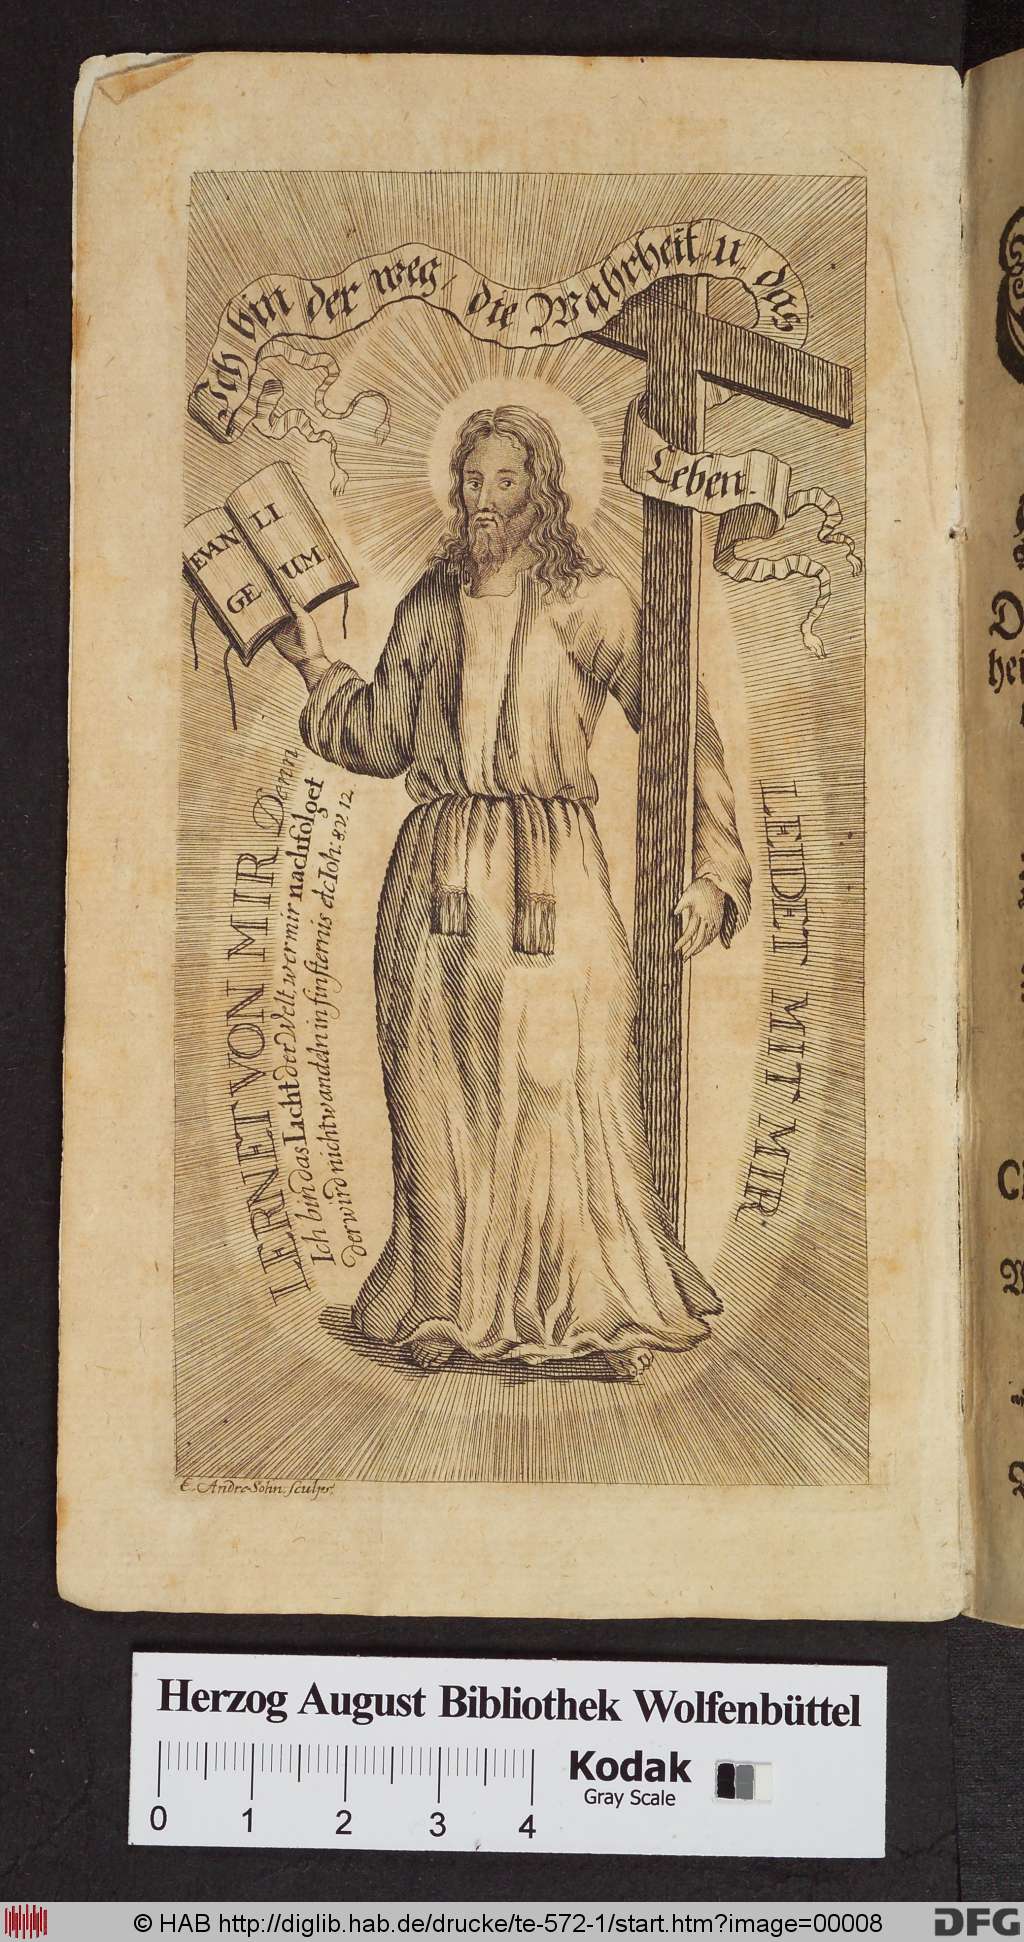 Ich bin der weg, die Wahrheit u das
Leben.
EVAN
GE
LI
UM.
LERNET VON MIR Dann
Ich bin das Licht der Welt, wer mir nachfolget
der wird nicht wandeln in finsternis etc Ioh: 8. v. 12.
LEIDET MIT MIR.
E. Andre-Sohn. sculps.
Herzog August Bibliothek Wolfenbüttel
Kodak
Gray Scale
0 1 2 3 4
© HAB http://diglib.hab.de/drucke/te-572-1/start.htm?image=00008
DFG